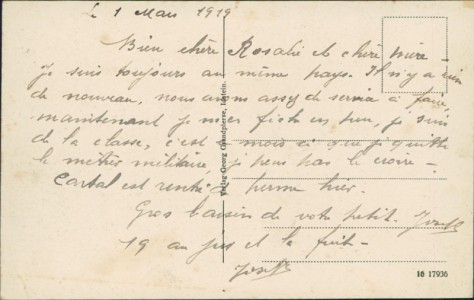 Le 1 Mars 1919
Bien chère Rosalie et chère mère -
Je suis toujours au même pays. Il n'y a rien
de nouveau, nous avons assez de service à faire,
maintenant je m'en fiche un peu, je suis
de la classe, c'est mois ci que je quitte
le métier militaire, je peux pas le croire -
est rentré de perme hier.
Gros baisers de votre petit. Joseph
19 au jus et la fuite -
Joseph
Verlag Georg
16 17936